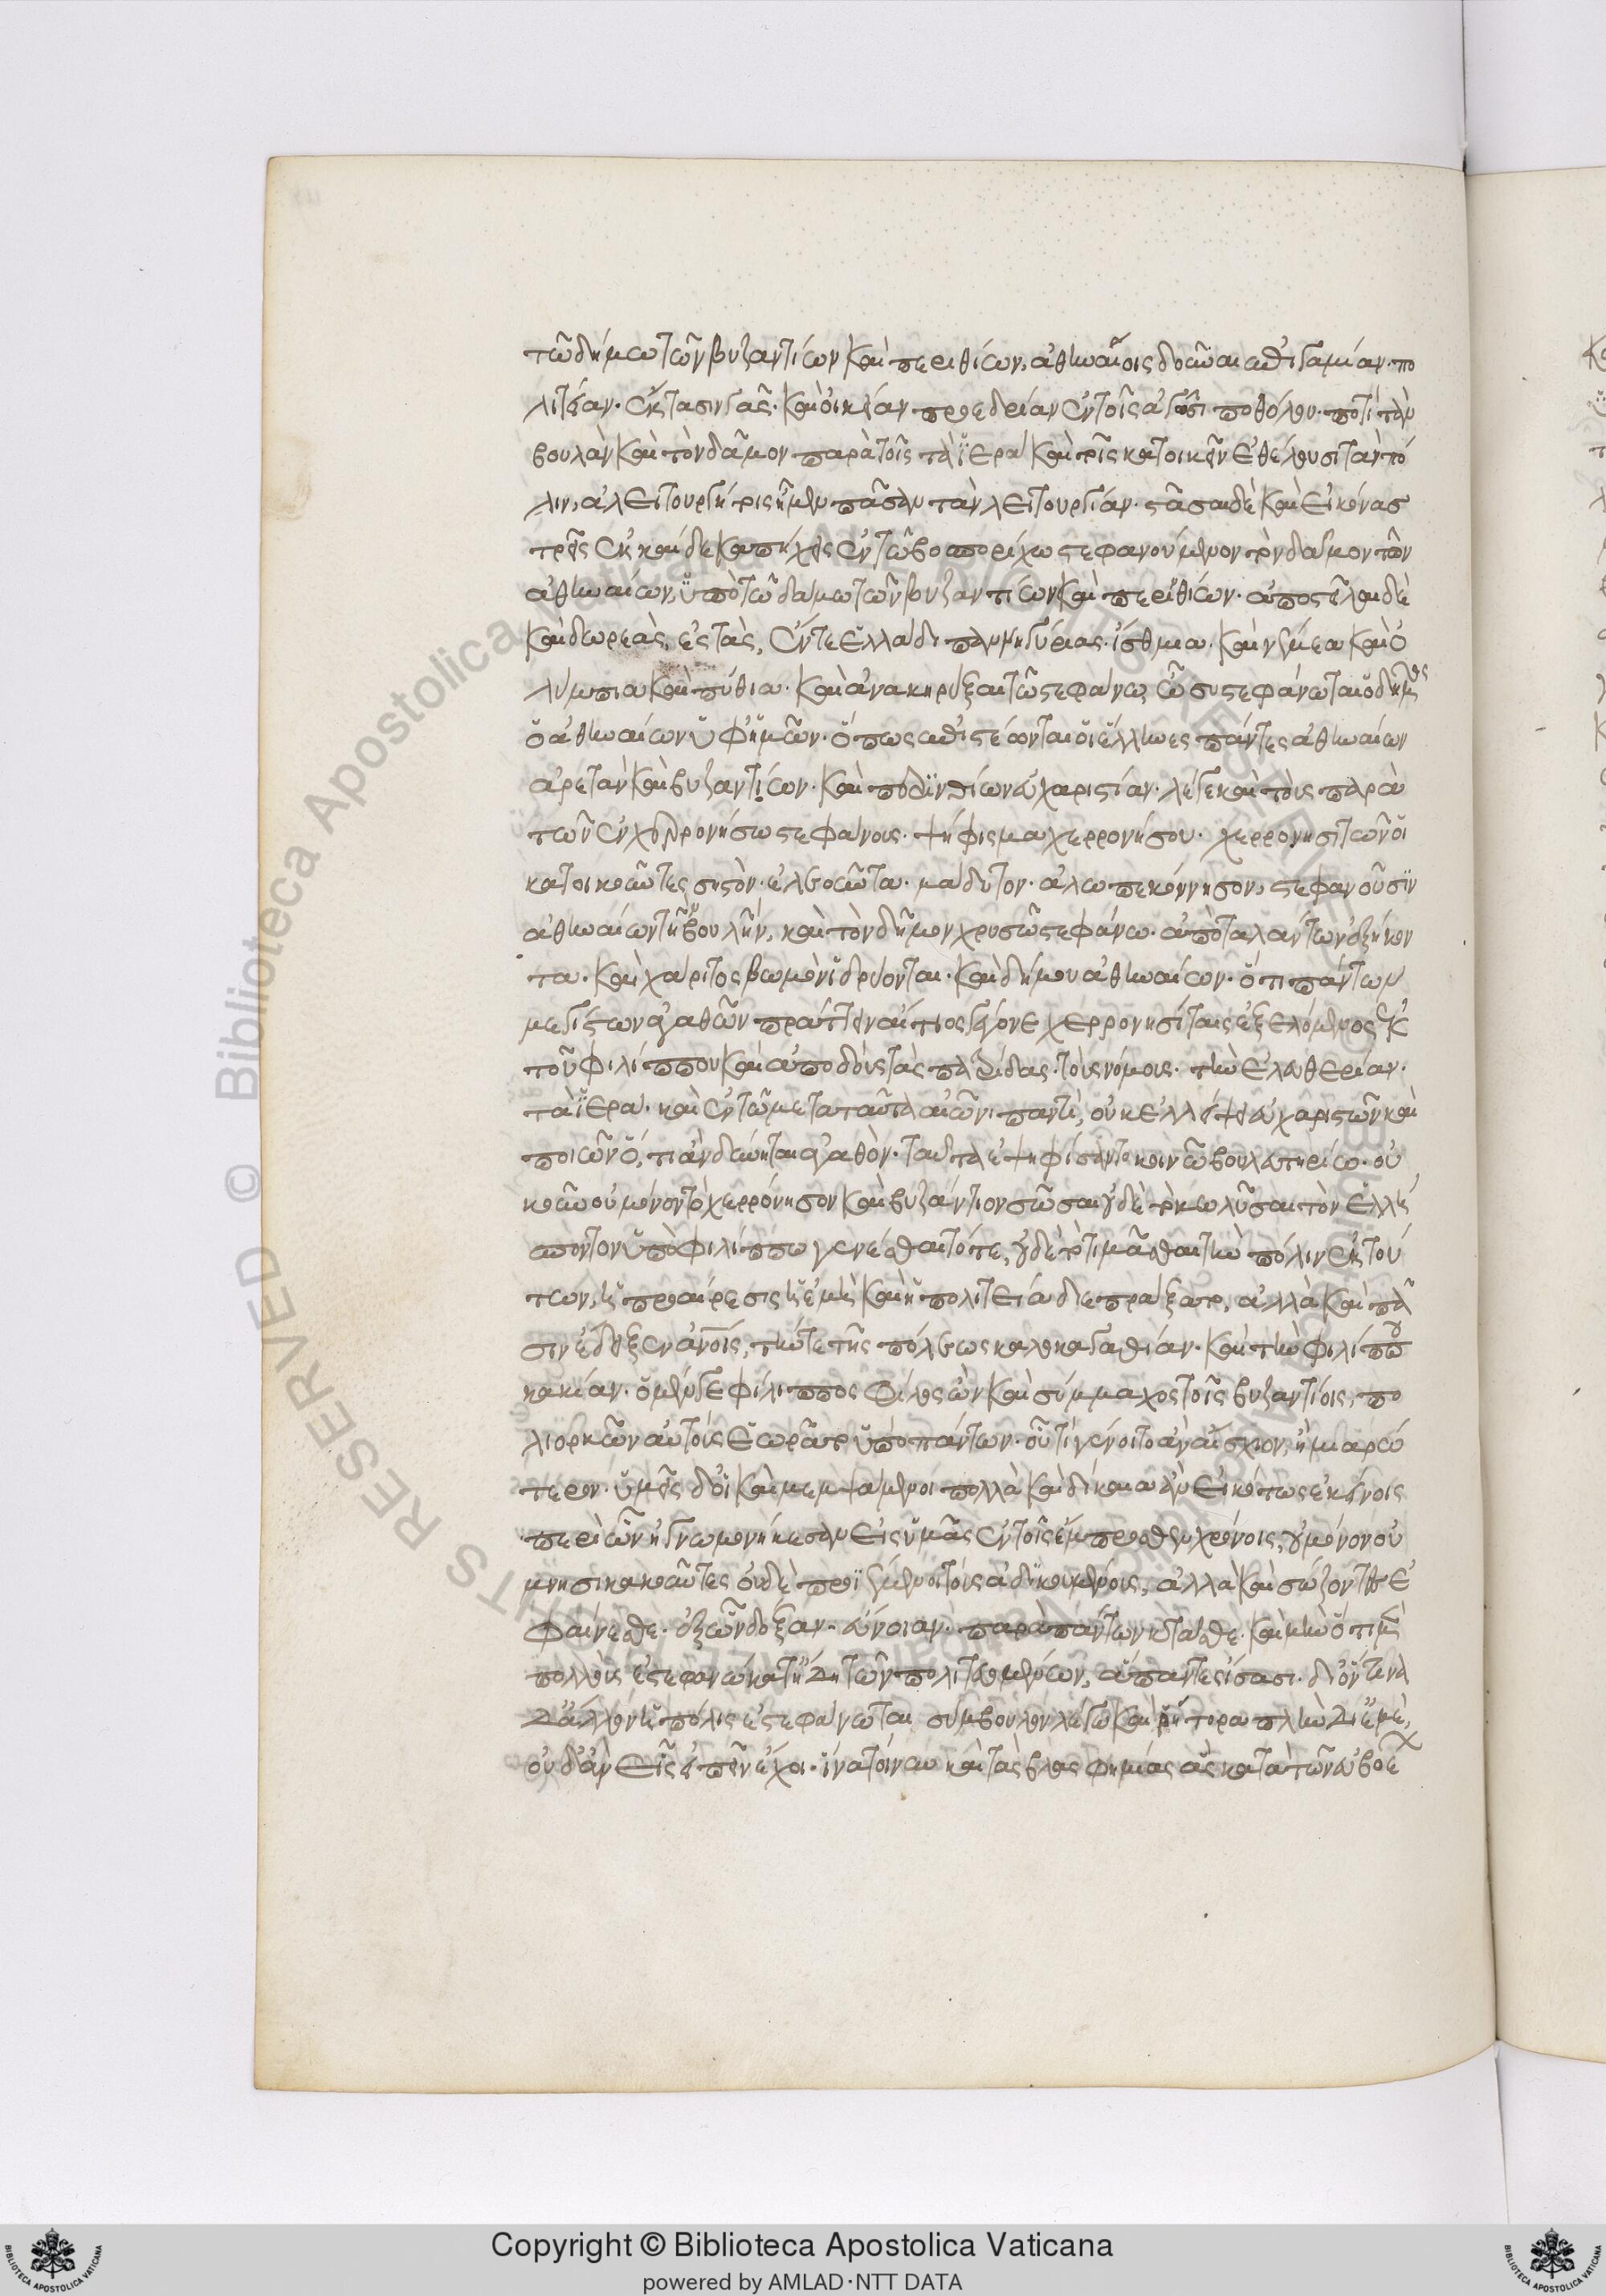 τῶ δήμω τῶν βυζαντίων καὶ περινθίων, ἀθηναίοις δοῦναι ἐπιγαμίαν. πο
λιτείαν. ἔγκτασιν γᾶς. καὶ οἰκιᾶν προεδρίαν ἐν τοῖς ἀγῶσι πόθοδον. ποτὶ τὰν
βουλὰν καὶ τὸν δᾶμον παρὰ τοῖς τὰ ἱερὰ καὶ τοῖς κατοικεῖν ἐθέλουσι τὰν πό
λιν, ἀλειτουργήτοις ἦμεν πασᾶν τᾶν λειτουργιᾶν. στᾶσαι δὲ καὶ εἰκόνας
τρεῖς ἑκκαιδεκαπήχεις ἐν τῶ βοσπορίχω στεφανούμενον τὸν δᾶμον τῶν
ἀθηναίων, ὑπὸ τῶ δάμω τῶν βυζαντίων καὶ περινθίων. ἀποστεῖλαι δὲ
καὶ δωρεὰς, ἐς τὰς, ἐν τε ἑλλάδι πανηγύριας. ἴσθμια. καὶ νέμεα καὶ ὀ
λύμπια καὶ πύθια. καὶ ἀνακηρύξαι τῶ στεφάνω, ὧ ἐστεφάνωται ὁ δῆμος
ὁ ἀθηναίων ὑφ' ἡμῶν. ὅπως ἐπιστέωνται οἱ ἕλληνες πάντες ἀθηναίων
ἀρετὰν καὶ βυζαντίων. καὶ περινθίων εὐχαριστίαν. λέγε καὶ τοὺς παρὰ
τῶν ἐν χερρονήσω στεφάνους. ψήφισμα χερρονήσου. χερρονησιτῶν οἱ
κατοικοῦντες σηστὸν. ἐλεοῦντα. μάδυτον. ἀλωπεκόννησον, στεφανοῦσιν
ἀθηναίων τὴν βουλὴν, καὶ τὸν δῆμον χρυσῶ στεφάνω. ἀπὸ ταλάντων ἑξήκον
τα. καὶ χάριτος βωμὸν ἱδρύονται. καὶ δήμου ἀθηναίων. ὅτι πάντων
μεγίστων ἀγαθῶν παραίτιος γέγονε χερρονησίταις ἐξελόμενος ἐκ
τοῦ φιλίππου καὶ ἀποδοὺς τὰς πατρίδας. τοὺς νόμους. τὴν ἐλευθερίαν.
τὰ ἱερά. καὶ ἐν τῶ μετὰ ταῦτα αἰῶνι παντὶ, οὐκ ἐλλείψει εὐχαριστῶν καὶ
ποιῶν ὅ, τι ἂν δύνηται ἀγαθόν. ταῦτα ἐψηφίσαντο ἐν τῶ κοινῶ βουλευτηρίω. οὐ
κοῦν οὐ μόνον τὸ χερρόνησον καὶ βυζάντιον σῶσαι οὐδὲ τὸ κωλῦσαι τὸν ἑλλή
σποντον ὑπὸ φιλίππω γενέσθαι τότε, οὐδὲ τὸ τιμᾶσθαι τὴν πόλιν ἐκ τού
των, ἡ προαίρεσις ἡ ἐμὴ καὶ ἡ πολιτεία διεπράξατο, ἀλλὰ καὶ πᾶ
σιν ἔδειξεν ἀνοις, τήν τε τῆς πόλεως καλοκαγαθίαν. καὶ τὴν φιλίππου
κακίαν. ὁ μέν γε φίλιππος φίλος ὢν καὶ σύμμαχος τοῖς βυζαντίοις, πο
λιορκῶν αὐτοὺς ἑωρᾶτο ὑπὸ πάντων. οὗ τί γένοιτο ἂν αἴσχιον, ἢ μιαρώ
τερον. ὑμεῖς δ' οἱ καὶ μεμψάμενοι πολλὰ καὶ δίκαια ἂν εἰκότως ἐκείνοις
περὶ ὧν ἠγνωμονήκεσαν εἰς ὑμᾶς ἐν τοῖς ἔμπροσθεν χρόνοις, οὐ μόνον οὐ
μνησικακοῦντες οὐδὲ προϊέμενοι τοὺς ἀδικουμένους, ἀλλὰ καὶ σώζοντες ἐ
φαίνεσθε. ἐξ ὧν δόξαν. εὔνοιαν. παρὰ πάντων κτᾶσθε. καὶ μὴν ὅτι μὲν
πολλοὺς ἐστεφανώκατ' ἤδη τῶν πολιτευομένων, ἅπαντες ἴσασι. δι' ὅντινα
δ' ἄλλον ἡ πόλις ἐστεφάνωται, σύμβουλον λέγω καὶ ῥήτορα πλὴν δι' ἐμὲ,
οὐδ' ἂν εἷς εἰπεῖν ἔχοι. ἵνα τοίνυν καὶ τὰς βλασφημίας ἃς κατὰ τῶν εὐβοέ
Copyright © Biblioteca Apostolica Vaticana
powered by AMLAD·NTT DATA